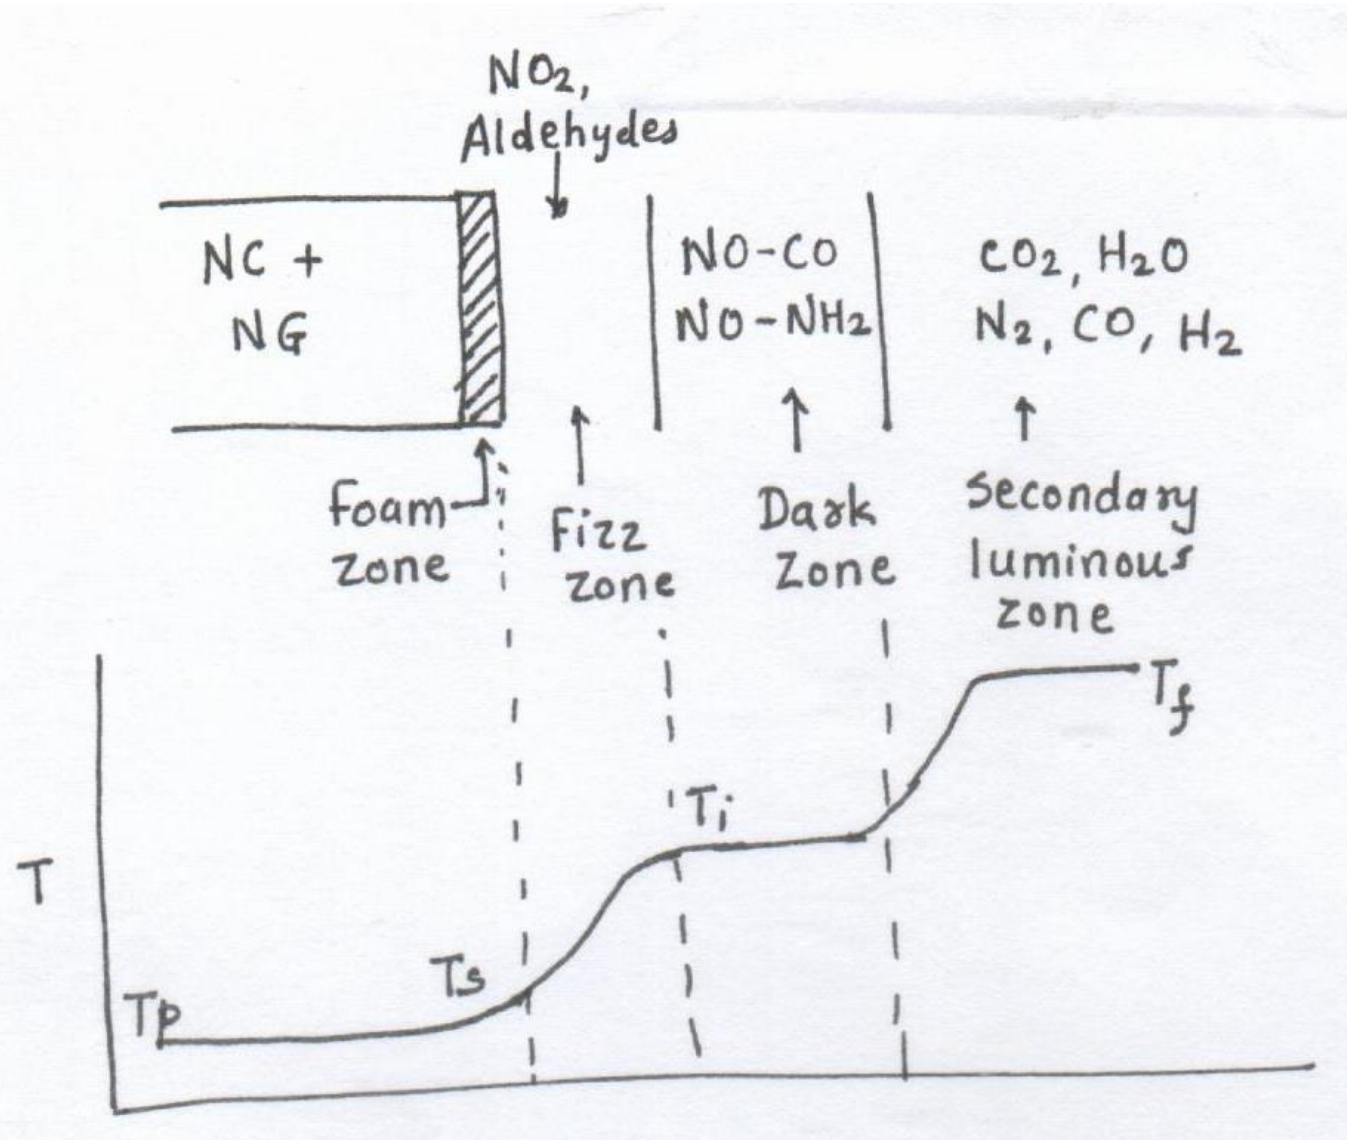 NO₂,
Aldehydes
NC +
NG
NO-CO
NO-NH₂
CO₂, H₂O
N₂, CO, H₂
Foam
zone
Fizz
zone
Dark
Zone
Secondary
luminous
zone
T
Tp
Ts
Ti
Tf